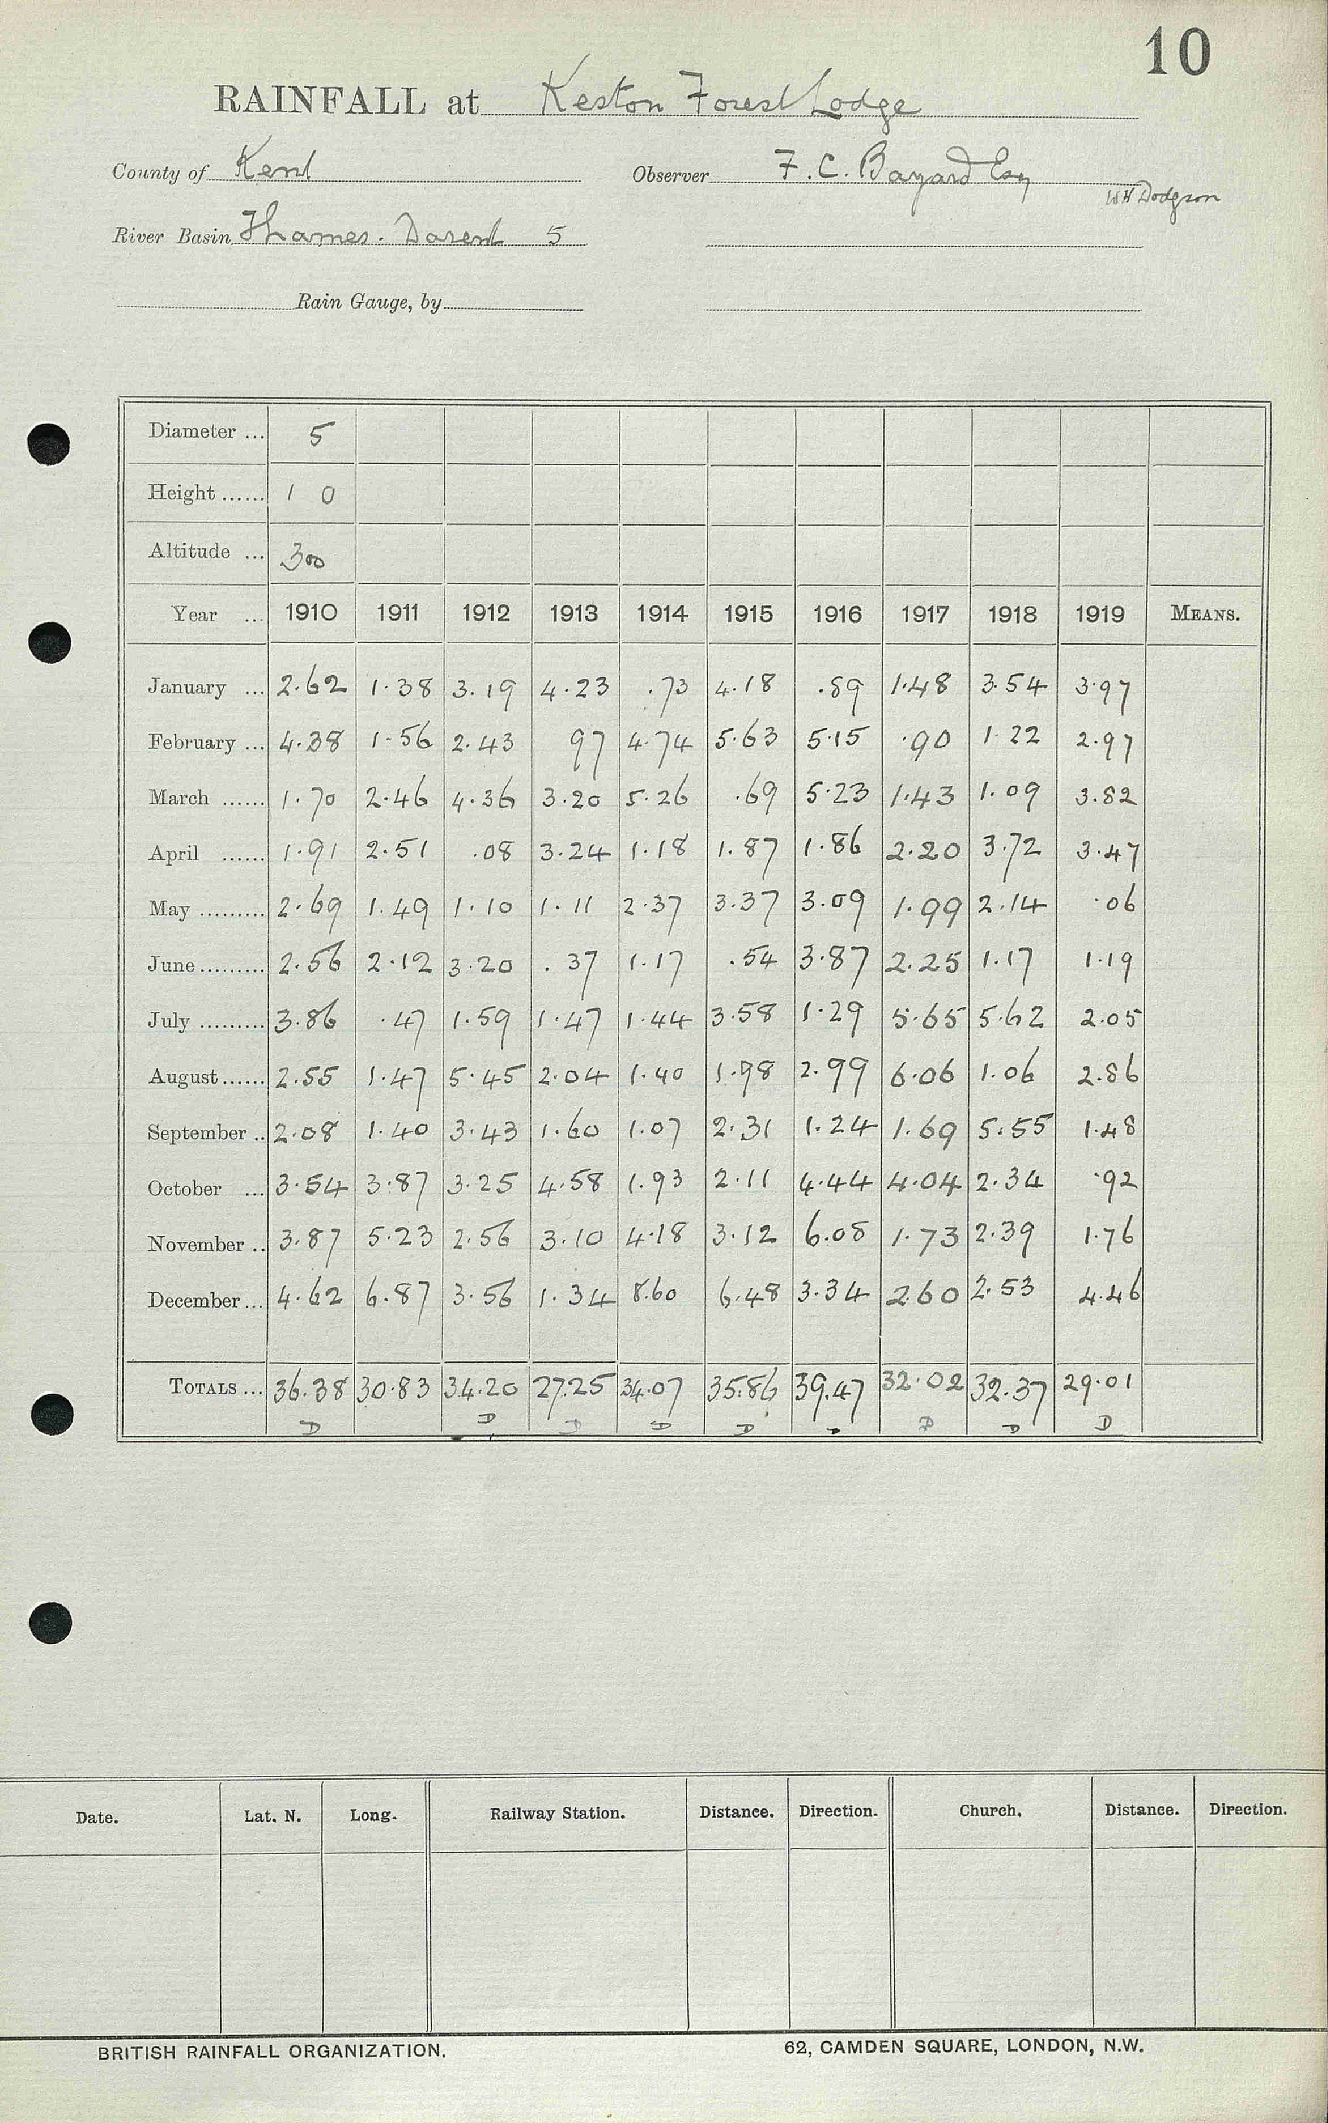 10
RAINFALL at Keston Forest Lodge
County of Kent Observer F. C. Bayard Esq
W H Dodgson
River Basin Thames. Darent 5
Rain Gauge, by
Diameter ... 5
Height ...... 1 0
Altitude ... 300
Year ... 1910 1911 1912 1913 1914 1915 1916 1917 1918 1919 MEANS.
January ... 2.62 1.38 3.19 4.23 .73 4.18 .89 1.48 3.54 3.97
February ... 4.38 1.56 2.43 97 4.74 5.63 5.15 .90 1.22 2.97
March ...... 1.70 2.46 4.36 3.20 5.26 .69 5.23 1.43 1.09 3.82
April ...... 1.91 2.51 .08 3.24 1.18 1.87 1.86 2.20 3.72 3.47
May ......... 2.69 1.49 1.10 1.11 2.37 3.37 3.09 1.99 2.14 .06
June ......... 2.56 2.12 3.20 .37 1.17 .54 3.87 2.25 1.17 1.19
July ......... 3.86 .47 1.59 1.47 1.44 3.58 1.29 5.65 5.62 2.05
August ...... 2.55 1.47 5.45 2.04 1.40 1.98 2.99 6.06 1.06 2.86
September .. 2.08 1.40 3.43 1.60 1.07 2.31 1.24 1.69 5.55 1.48
October ... 3.54 3.87 3.25 4.58 1.93 2.11 4.44 4.04 2.34 .92
November .. 3.87 5.23 2.56 3.10 4.18 3.12 6.08 1.73 2.39 1.76
December ... 4.62 6.87 3.56 1.34 8.60 6.48 3.34 2.60 2.53 4.46
TOTALS ... 36.38 30.83 34.20 27.25 34.07 35.86 39.47 32.02 32.37 29.01
D D D D D D D D
Date. Lat. N. Long. Railway Station. Distance. Direction. Church. Distance. Direction.
BRITISH RAINFALL ORGANIZATION. 62, CAMDEN SQUARE, LONDON, N.W.